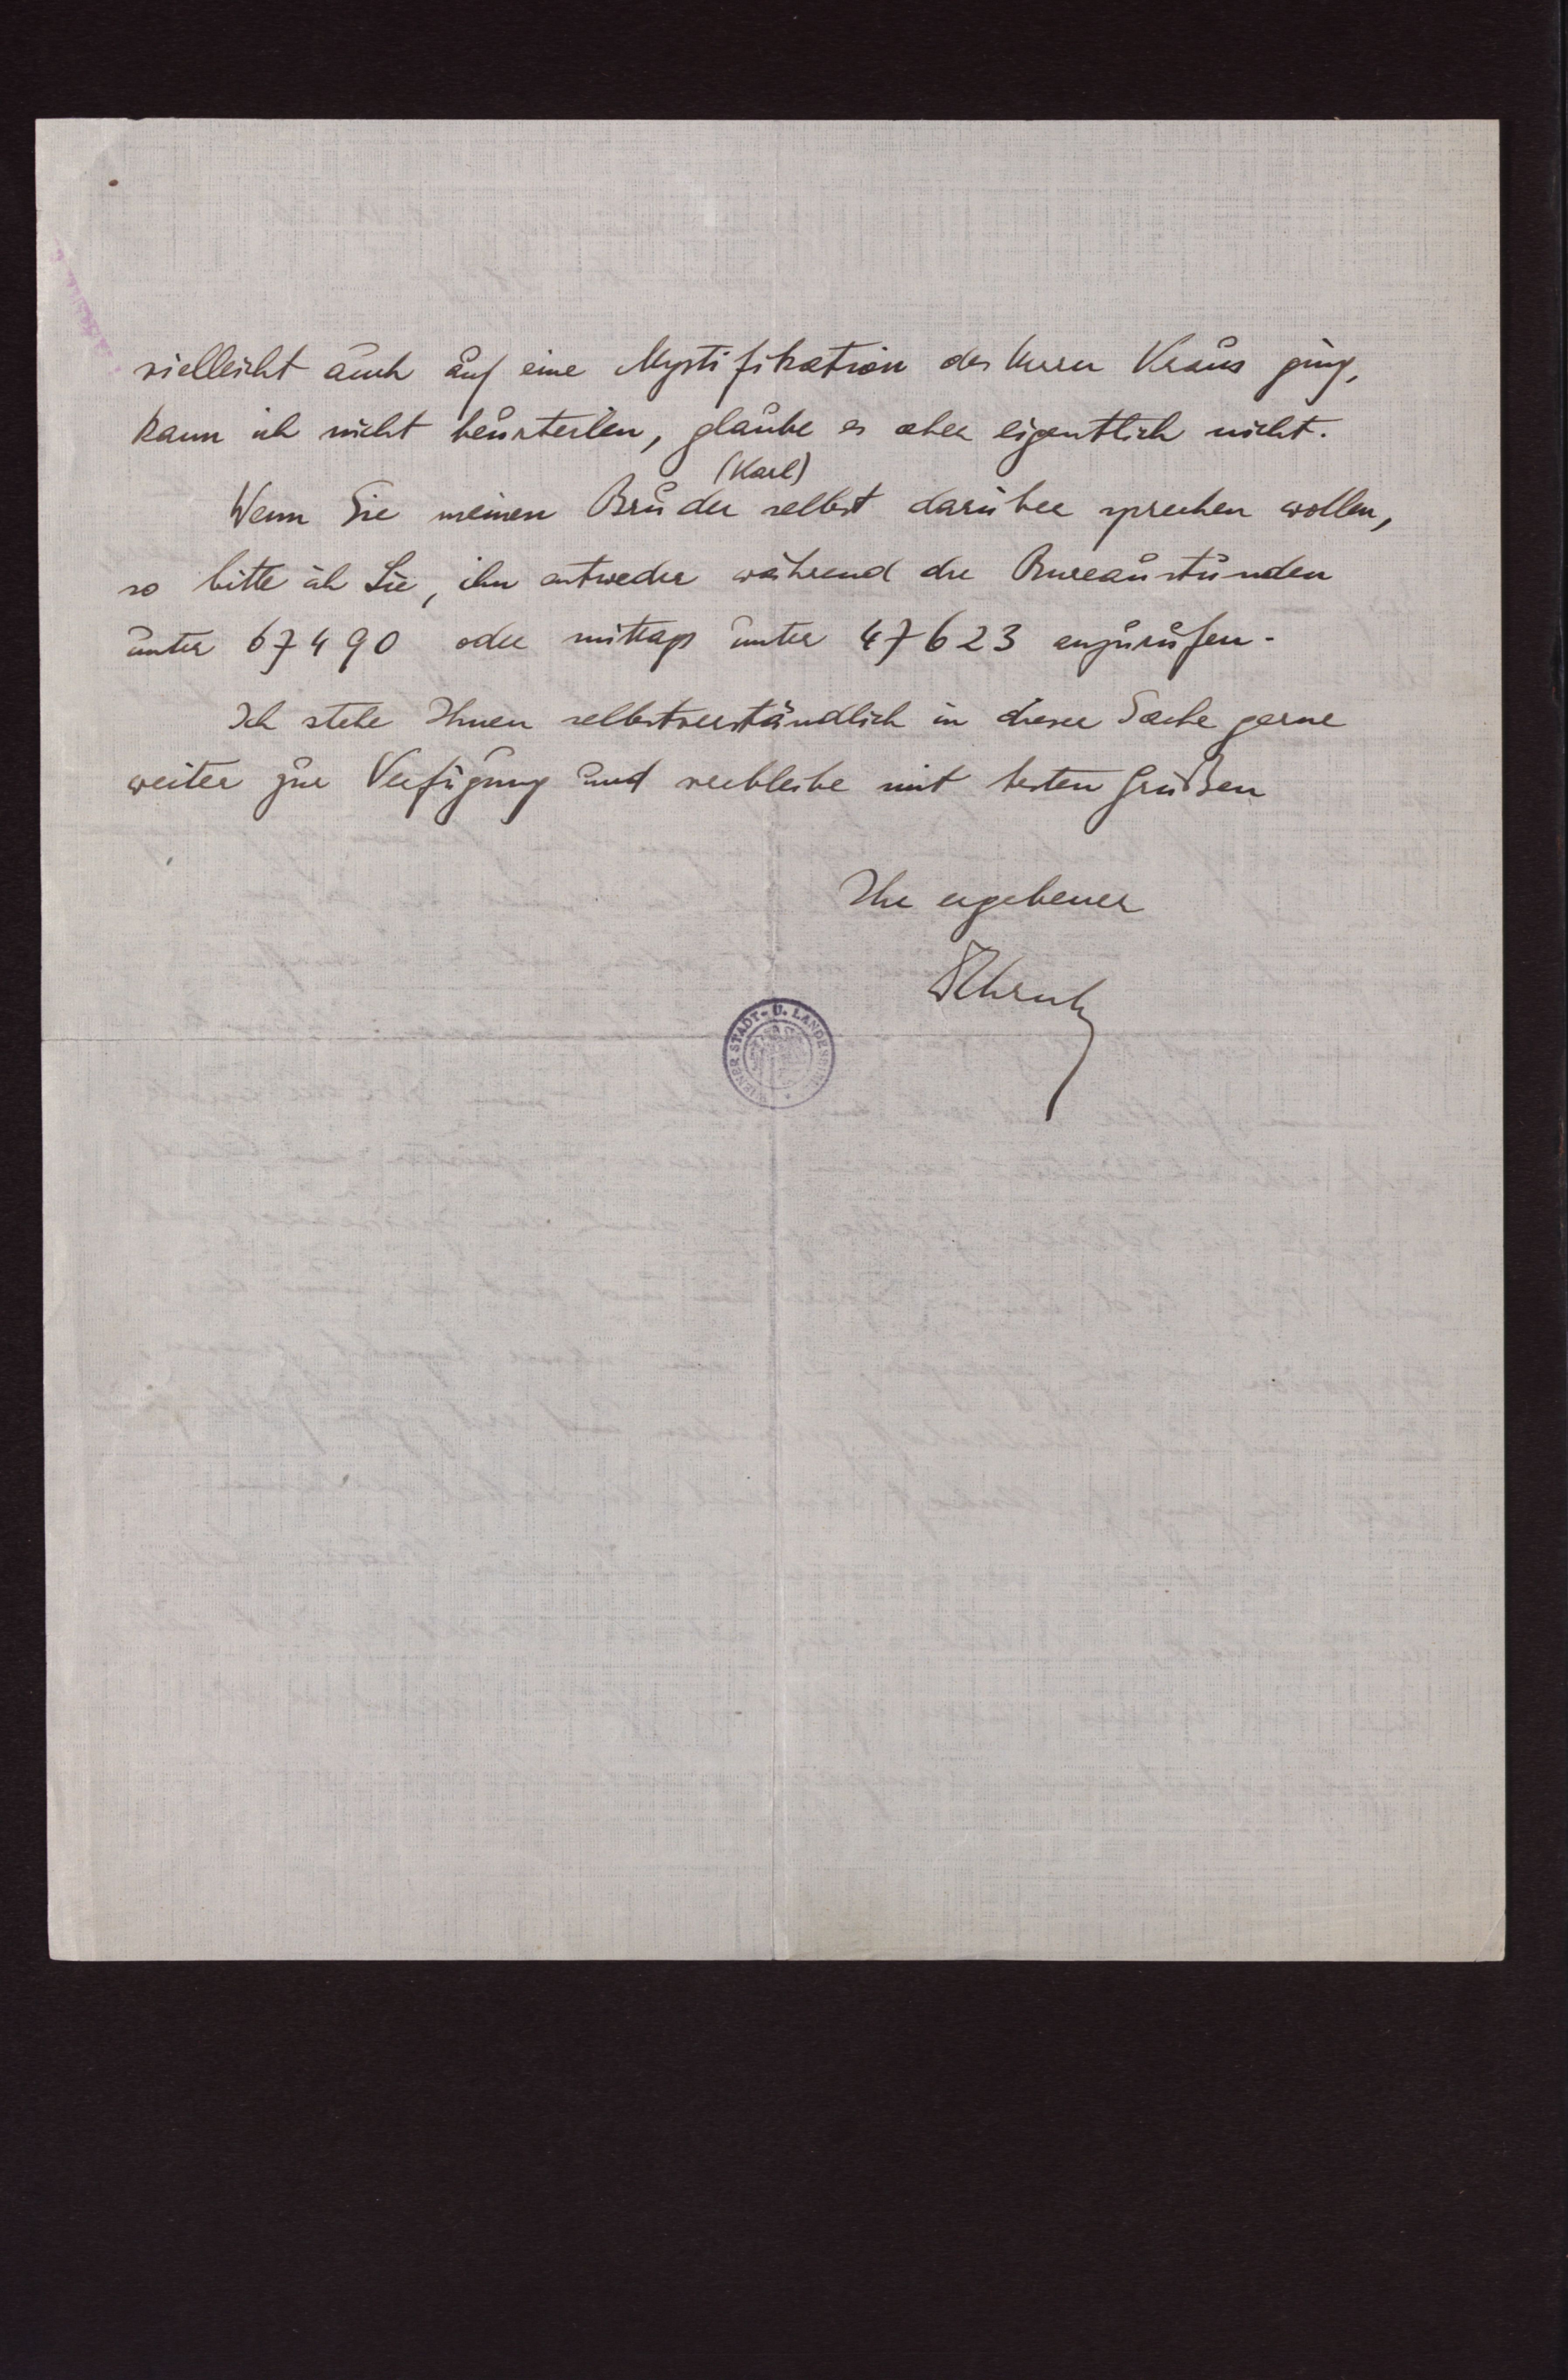 vielleicht auch auf eine Mystifikation des Herrn Kraus ging,
kann ich nicht beurteilen, glaube es aber eigentlich nicht.
(Karl)
Wenn Sie meinen Bruder selbst darüber sprechen wollen,
so bitte ich Sie, ihn entweder während der Bureaustunden
unter 67490 oder mittags unter 47623 anzurufen.
Ich stehe Ihnen selbstverständlich in dieser Sache gerne
weiter zur Verfügung und verbleibe mit besten Grüßen
Ihr ergebener
WIENER STADT- U. LANDESBIBL.